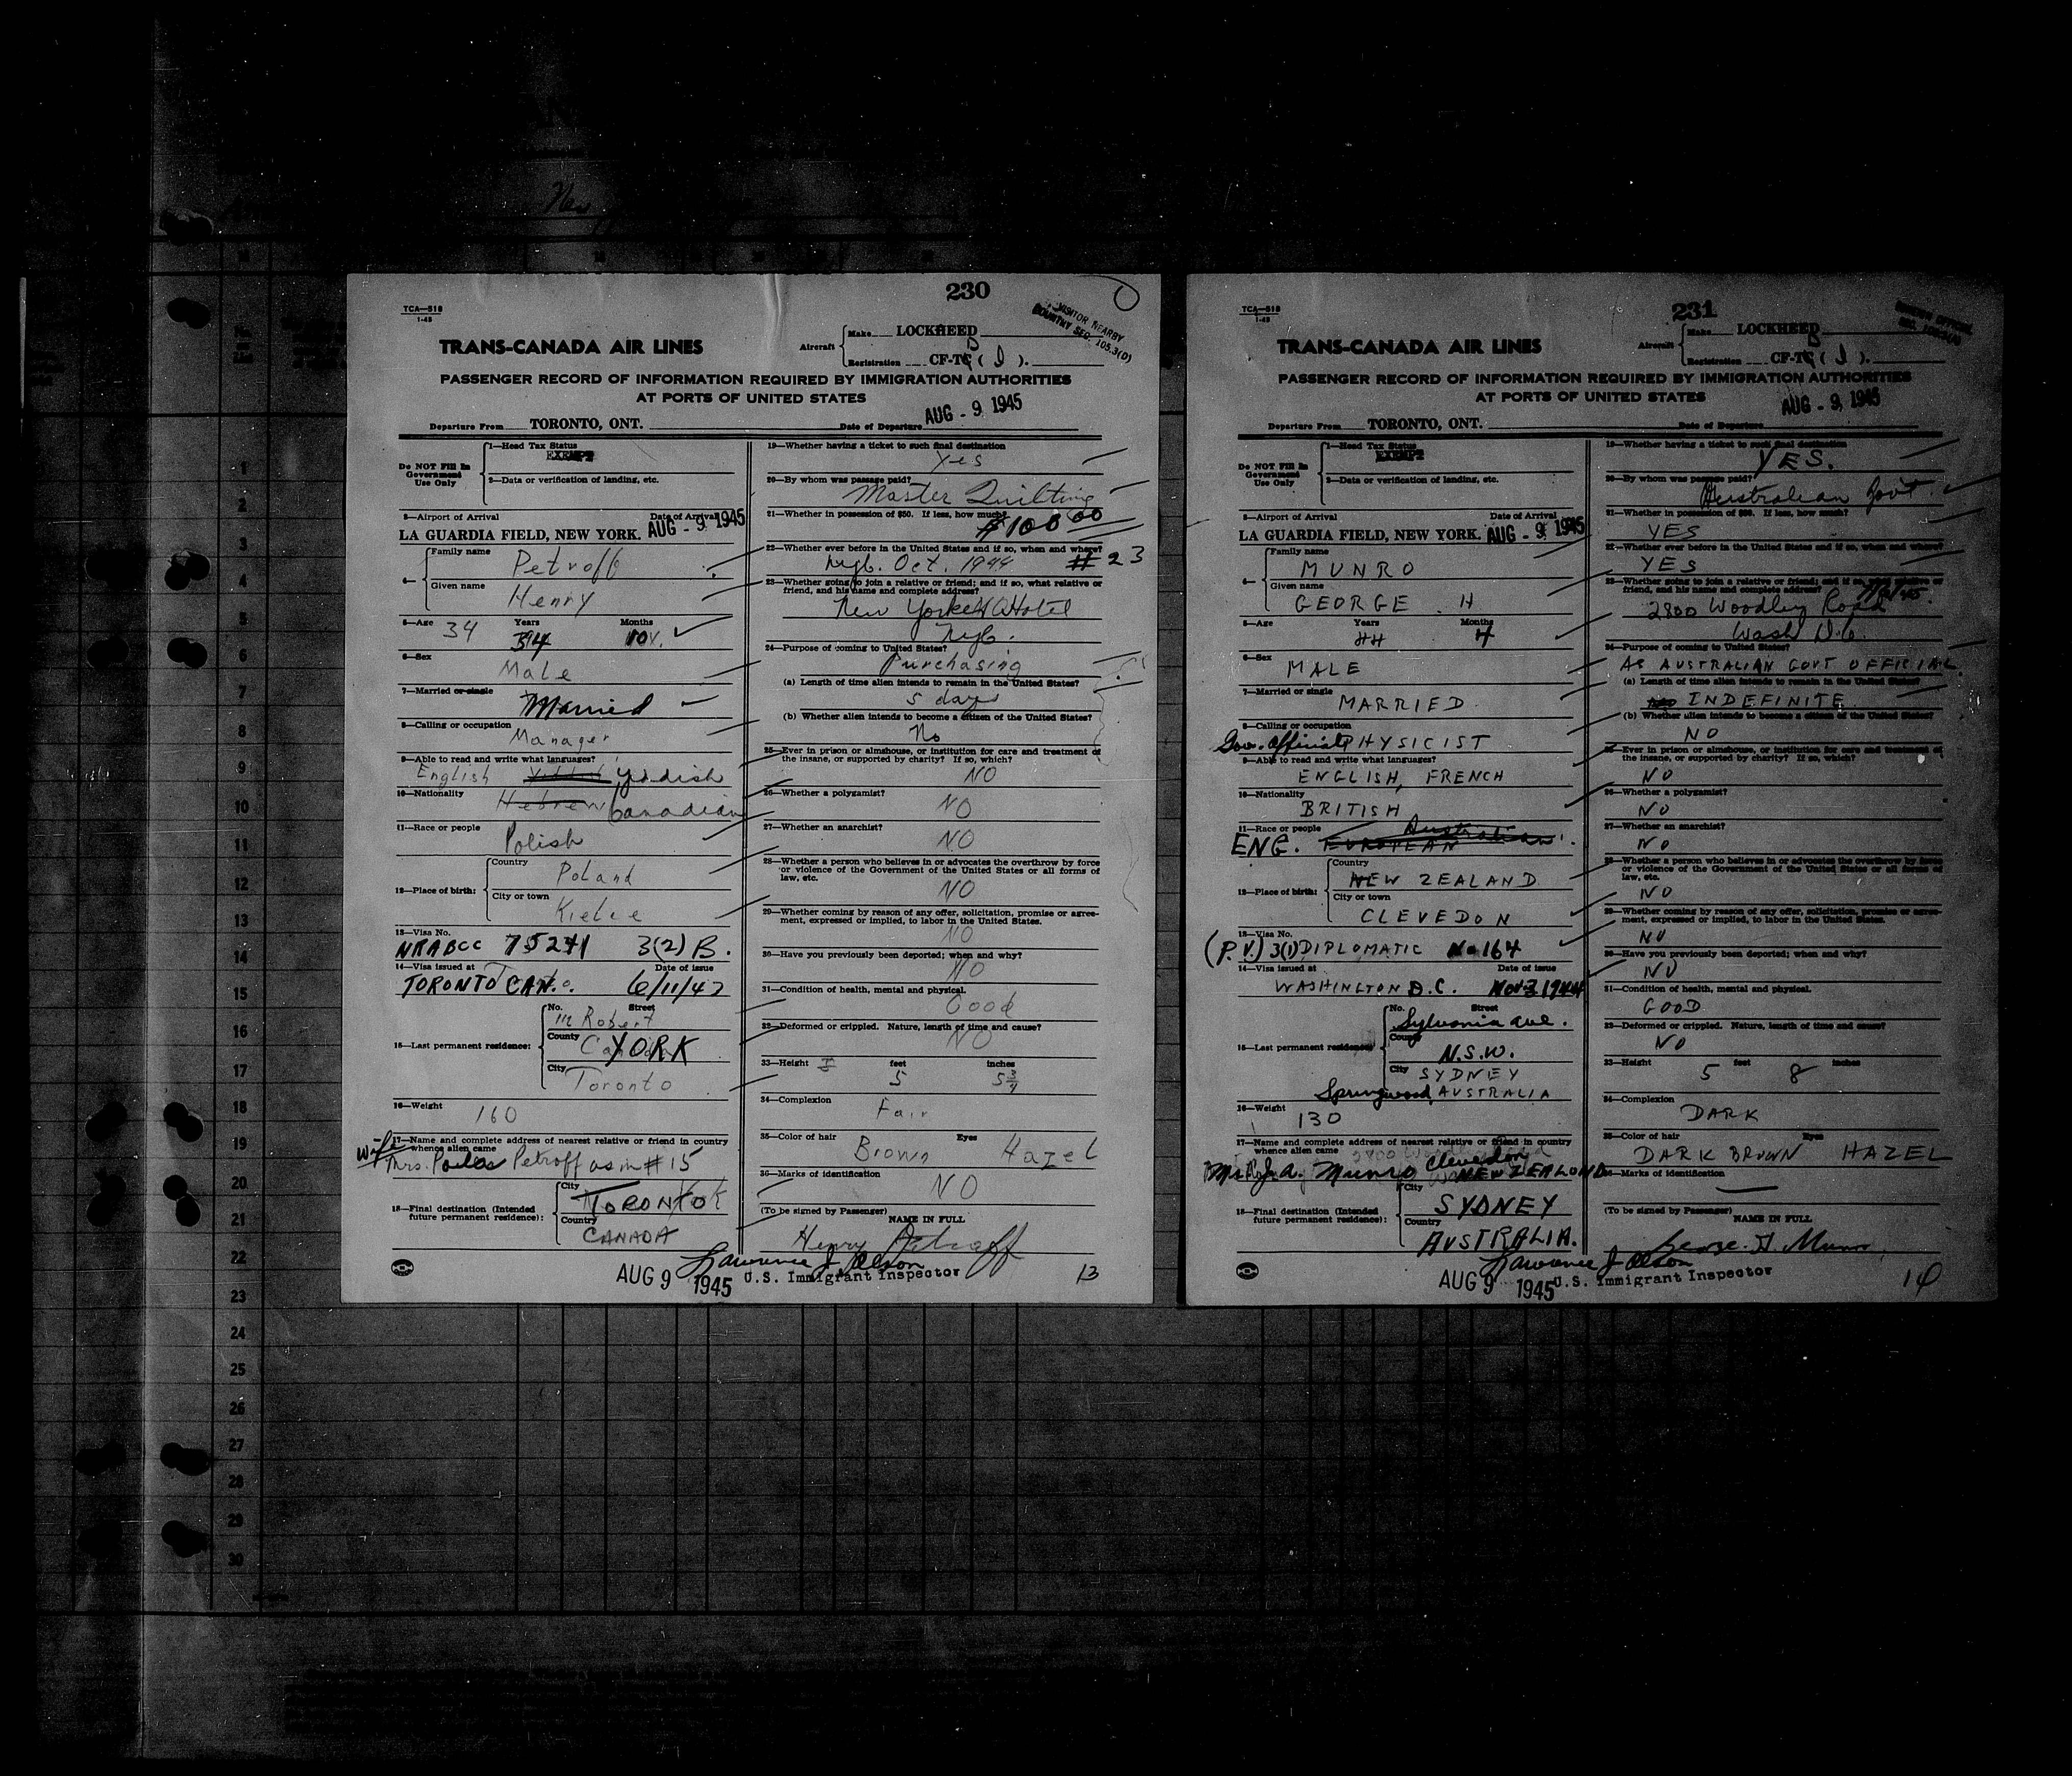 230
TCA—518
1-45
VISITOR NEARBY
COUNTRY SEC. 105.3(D)
TRANS-CANADA AIR LINES
Aircraft
Make LOCKHEED
Registration CF-TC ( J ).
PASSENGER RECORD OF INFORMATION REQUIRED BY IMMIGRATION AUTHORITIES
AT PORTS OF UNITED STATES
Departure From TORONTO, ONT. Date of Departure AUG - 9 1945
Do NOT Fill In
Government
Use Only
1—Head Tax Status
EXEMPT
2—Data or verification of landing, etc.
3—Airport of Arrival Date of Arrival
LA GUARDIA FIELD, NEW YORK. AUG - 9 1945
4—
Family name
Petroff
Given name
Henry
5—Age Years Months
34 10
6—Sex
Male
7—Married or single
Married
8—Calling or occupation
Manager
9—Able to read and write what languages?
English Yiddish
10—Nationality
Hebrew Canadian
11—Race or people
Polish
12—Place of birth:
Country
Poland
City or town
Kielce
13—Visa No.
NRABCC 75241 3(2) B.
14—Visa issued at Date of issue
TORONTO CAN. 6/11/42
15—Last permanent residence:
No. Street
Robert
County
YORK
City
Toronto
16—Weight
160
17—Name and complete address of nearest relative or friend in country
whence alien came
wife
Mrs. Petroff as in # 15
18—Final destination (Intended
future permanent residence):
City
TORONTO
Country
CANADA
19—Whether having a ticket to such final destination
Yes
20—By whom was passage paid?
Master Quilting
21—Whether in possession of $50. If less, how much?
$100 00
22—Whether ever before in the United States and if so, when and where?
Oct. 1944 # 23
23—Whether going to join a relative or friend; and if so, what relative or
friend, and his name and complete address?
New Yorker Hotel
24—Purpose of coming to United States?
Purchasing
(a) Length of time alien intends to remain in the United States?
5 days
(b) Whether alien intends to become a citizen of the United States?
No
25—Ever in prison or almshouse, or institution for care and treatment of
the insane, or supported by charity? If so, which?
NO
26—Whether a polygamist?
NO
27—Whether an anarchist?
NO
28—Whether a person who believes in or advocates the overthrow by force
or violence of the Government of the United States or all forms of
law, etc.
NO
29—Whether coming by reason of any offer, solicitation, promise or agree-
ment, expressed or implied, to labor in the United States.
NO
30—Have you previously been deported; when and why?
NO
31—Condition of health, mental and physical.
Good
32—Deformed or crippled. Nature, length of time and cause?
NO
33—Height feet inches
5 5 3/4
34—Complexion
Fair
35—Color of hair Eyes
Brown Hazel
36—Marks of identification
NO
(To be signed by Passenger)
NAME IN FULL
Henry Petroff
Lawrence J. Olson
AUG 9 1945 U.S. Immigrant Inspector
13
231
TCA—518
1-45
TRANS-CANADA AIR LINES
Aircraft
Make LOCKHEED
Registration CF-TC ( J ).
PASSENGER RECORD OF INFORMATION REQUIRED BY IMMIGRATION AUTHORITIES
AT PORTS OF UNITED STATES
Departure From TORONTO, ONT. Date of Departure AUG - 9 1945
Do NOT Fill In
Government
Use Only
1—Head Tax Status
EXEMPT
2—Data or verification of landing, etc.
3—Airport of Arrival Date of Arrival
LA GUARDIA FIELD, NEW YORK. AUG - 9 1945
4—
Family name
MUNRO
Given name
GEORGE . H
5—Age Years Months
44 4
6—Sex
MALE
7—Married or single
MARRIED
8—Calling or occupation
Gov. Official PHYSICIST
9—Able to read and write what languages?
ENGLISH, FRENCH
10—Nationality
BRITISH
11—Race or people Australian
ENG. EUROPEAN
12—Place of birth:
Country
NEW ZEALAND
City or town
CLEVEDON
13—Visa No.
(P.V.) 3(1) DIPLOMATIC No 164
14—Visa issued at Date of issue
WASHINGTON D.C. Nov 3 1944
15—Last permanent residence:
No. Street
Sylvania ave.
County
N.S.W.
City
SYDNEY
Springwood, AUSTRALIA
16—Weight
130
17—Name and complete address of nearest relative or friend in country
whence alien came
Munro Clevedon
NEW ZEALAND
18—Final destination (Intended
future permanent residence):
City
SYDNEY
Country
AUSTRALIA.
19—Whether having a ticket to such final destination
YES.
20—By whom was passage paid?
Australian Govt
21—Whether in possession of $50. If less, how much?
YES
22—Whether ever before in the United States and if so, when and where?
YES
23—Whether going to join a relative or friend; and if so, what relative or
friend, and his name and complete address?
2800 Woodley Road
Wash D.C.
24—Purpose of coming to United States?
AS AUSTRALIAN GOVT OFFICIAL
(a) Length of time alien intends to remain in the United States?
INDEFINITE
(b) Whether alien intends to become a citizen of the United States?
NO
25—Ever in prison or almshouse, or institution for care and treatment of
the insane, or supported by charity? If so, which?
NO
26—Whether a polygamist?
NO
27—Whether an anarchist?
NO
28—Whether a person who believes in or advocates the overthrow by force
or violence of the Government of the United States or all forms of
law, etc.
NO
29—Whether coming by reason of any offer, solicitation, promise or agree-
ment, expressed or implied, to labor in the United States.
NO
30—Have you previously been deported; when and why?
NO
31—Condition of health, mental and physical.
GOOD
32—Deformed or crippled. Nature, length of time and cause?
NO
33—Height feet inches
5 8
34—Complexion
DARK
35—Color of hair Eyes
DARK BROWN HAZEL
36—Marks of identification
(To be signed by Passenger)
NAME IN FULL
George. H. Munro
Lawrence J. Olson
AUG 9 1945 U.S. Immigrant Inspector
14
1
2
3
4
5
6
7
8
9
10
11
12
13
14
15
16
17
18
19
20
21
22
23
24
25
26
27
28
29
30